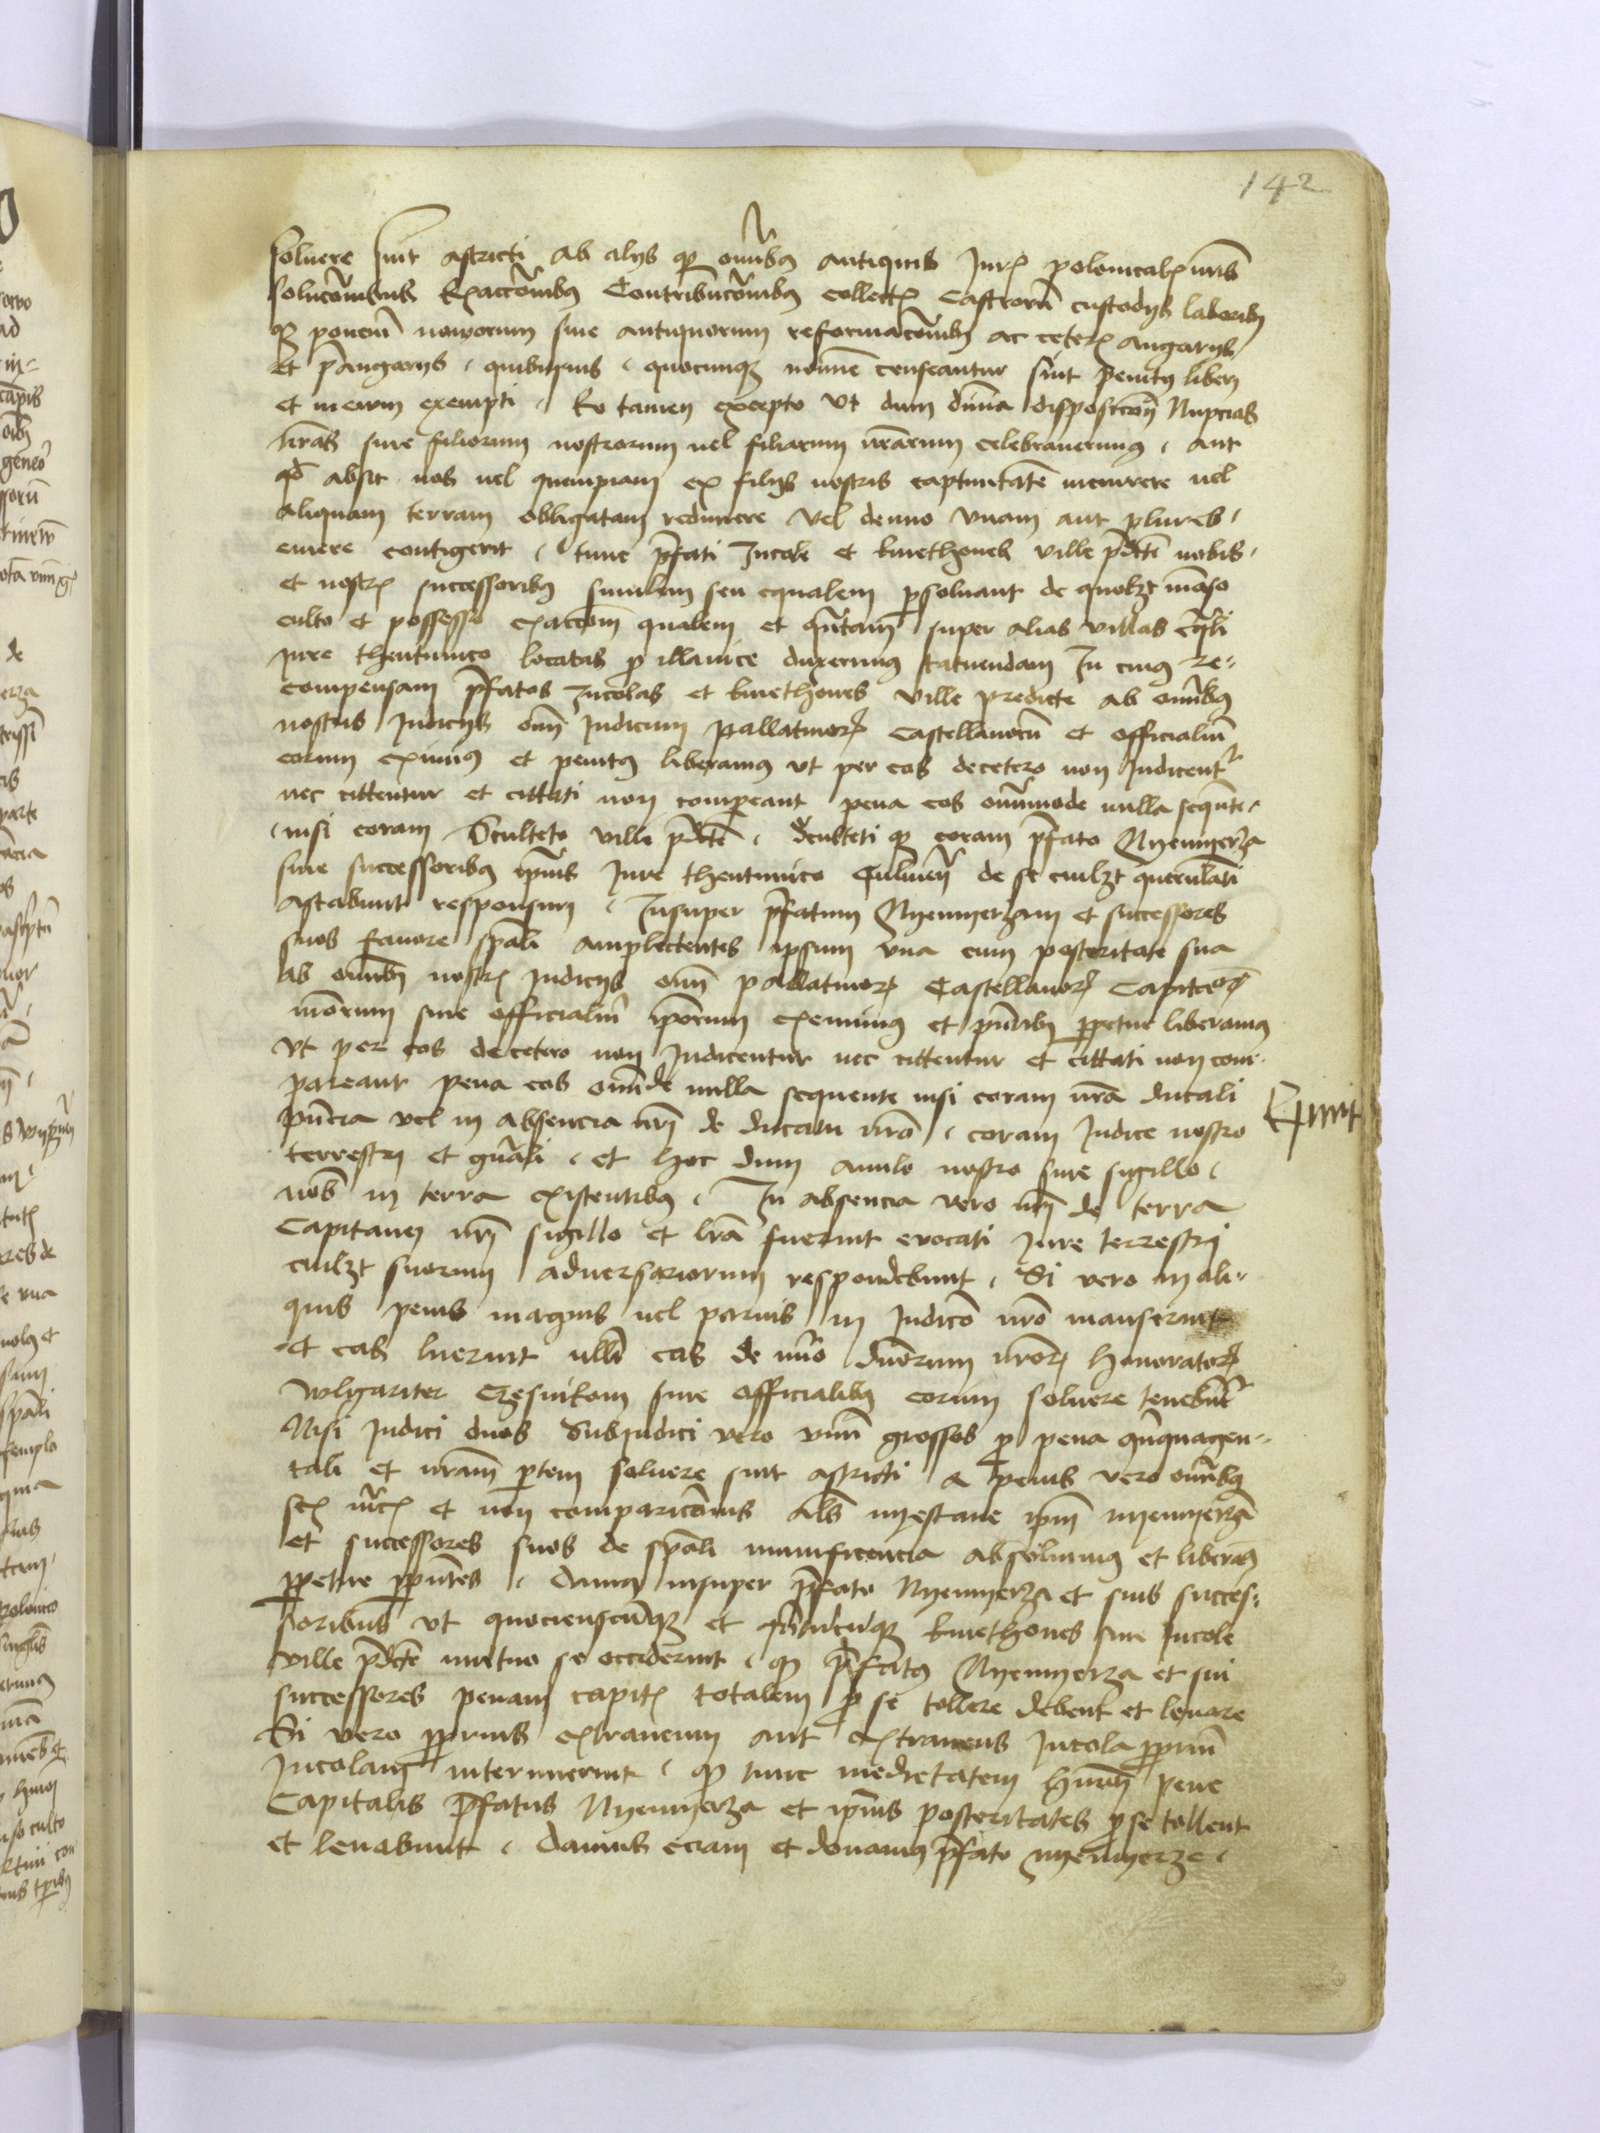 142
soluere sint astricti ab alys q̄ om̄ibꝫ antiquis Jurꝭ polonicalꝭ uris
solucōnibus Exaccōnibꝫ Contribucōnibꝫ collectꝭ Castrorū custodys laboribꝫ
qꝫ poncium nouorum siue antiquorum reformacōnibꝫ ac ceterꝭ angarys
et p̄angarys quibusuis quocunqꝫ nomīe censeantur sint penitꝫ liberi
et merum exempti Eo tamen excepto vt dum diuina disposicōn Nupcias
nr̄as siue filiorum nostrorum uel filiarum nr̄arum celebrauerimꝫ aut
qd̄ absit nos uel quempiam ex filys nostris captiuitatē incurrere uel
aliquam terram obligatam redimere vel denuo vnam aut plures
emere contigerit tunc p̄fati Incole et kmethones ville p̄dicte nobis
et nostrꝭ successoribꝫ similem seu equalem p̱soluant de quolꝫt māso
culto et possesso exaccōm qualem et q̄ntam super alias villas
iure theutunico locatas p̱ illa vice duxerimꝫ statuendam In cuiꝫ re-
compensam p̄fatos Incolas et kmethones ville predicte ab om̄ibꝫ
nostris Judicys om̄ Judicum pallatinorꝭ castellanorū et officialiū
eorum eximimꝫ et penitꝫ liberamꝫ vt per eos decetero non Judicentr̄
nec cittentur et cittati non compareant pena eos om̄imode nulla seqn̄te
nisi coram Sculteto ville p̄dicte Sculteti qꝫ coram p̄fato Nyemyerza
siue successoribꝫ ip̄ius Jure theutunico Culmen̄ de se cuilꝫt querulāti
astabunt responsuri Insuper p̄fatum Nyemyerzam et successores
suos fauore sp̄ali amplectentes ipsum vna cum posteritate sua
ab om̄ibꝫ nostrꝭ Judicys om̄ pallatinorꝭ Castellanorꝭ Capitaneorꝭ
nr̄orum siue officialiū ip̄orum eximimꝫ et p̄ntibꝫ p̱petue liberamꝫ
vt per eos decetero non Judicentur nec cittentur et cittati non com-
pareant pena eos om̄ide nulla sequente nisi coram nr̄a ducali
p̄ntia vel in absencia nr̄i de ducatu nr̄o coram Judice nostro
terrestri et gn̄ali et hoc dum anulo nostro siue sigillo
nob̄ in terra existentibꝫ In absencia vero nr̄i de terra
Capitanei nr̄i sigillo et lr̄a fuerint euocati Jure terrestri
cuilꝫt suorum aduersariorum respondebunt Si vero in ali-
quis penis magnis uel paruis in Judicō nr̄o manserint
et eas luerint nulli eas de nūo dn̄orum nr̄orꝭ honoratorꝭ
wlgariter Czesnikom siue officialibꝫ eorum soluere tenebūtr̄
Nisi Judici duos Subiudici vero vnū grossos p̱ pena q̄nquagen-
tali et nr̄am p̱tem soluere sint astricti A penis vero om̄ibꝫ
et non comparicōnis als̄ nyestane ip̄m nyemyerzā
et successores suos de sp̄ali munificencia absoluimꝫ et liberamꝫ
p̱petue p̱ p̄ntes Damꝫ insuper p̄fato Nyemyerza et suis succes-
soribus vt quocienscūqꝫ et kmethones siue Incole
ville p̄dicte mutuo se occiderint qꝫ p̄fatꝫ Nyemyerza et sui
successores penam capitꝭ totalem p̱ se tollere debent et leuare
Si vero p̱prius extraneum aut extraneus Incola p̱prium
Incolam interimerint qꝫ tunc medietatem huiꝫ pene
Capitalis p̄fatus Nyemyerza et ip̄ius posteritates p̱ se tollent
et leuabunt Damus eciam et donamꝫ p̄fato nyemyerze